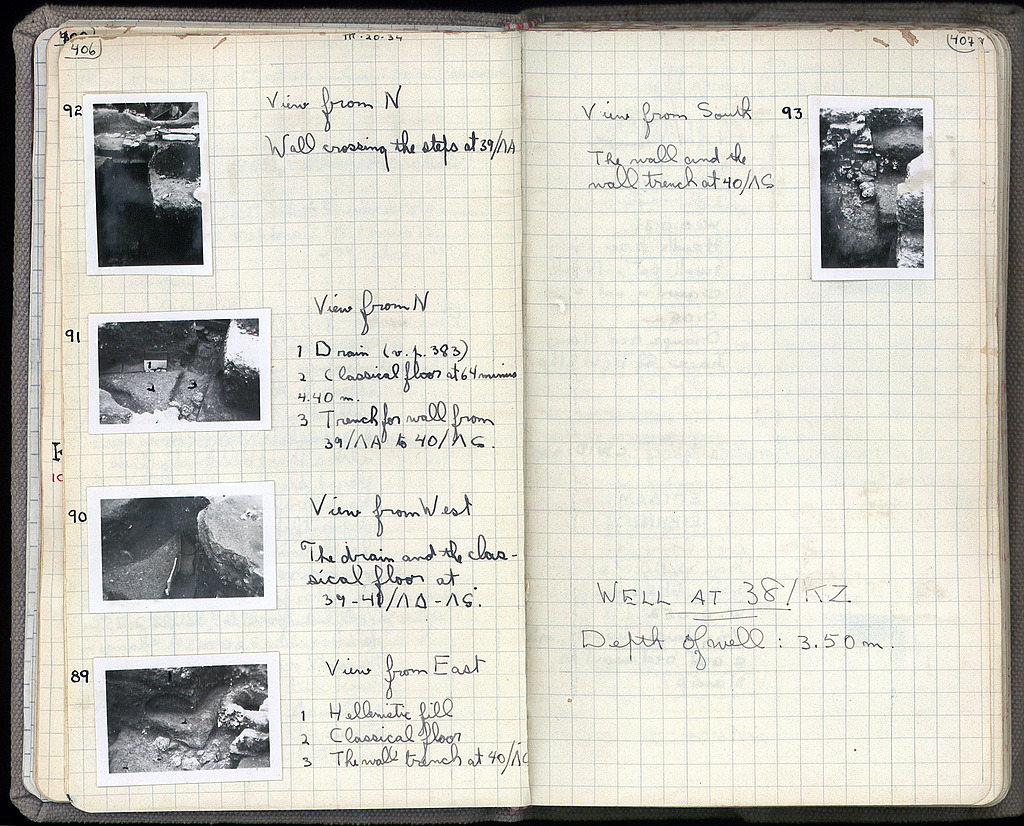 406
III-20-34
92
View from N
Wall crossing the steps at 39/ΛΔ
91
View from N
1 Drain (v. p. 383)
2 Classical floor at 64 minus
4.40 m.
3 Trench for wall from
39/ΛΔ to 40/ΛϚ.
90
View from West
The drain and the clas-
sical floor at
39-40/ΛΔ-ΛϚ.
89
View from East
1 Hellenistic fill
2 Classical floor
3 The wall trench at 40/ΛϚ
407
View from South
93
The wall and the
wall trench at 40/ΛϚ
WELL AT 38/ΚΖ
Depth of well: 3.50 m.